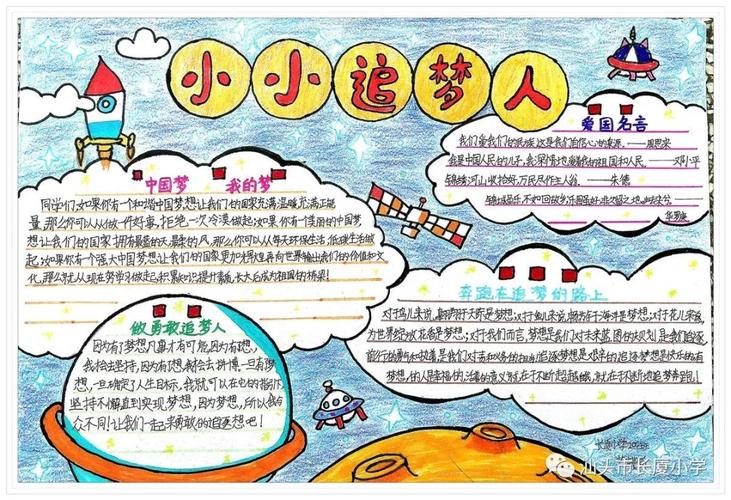 小小追梦人
爱国名言
我们爱我们的民族,这是我们自信心的来源。——周恩来
我是中国人民的儿子,我深情地爱着我的祖国和人民。——邓小平
锦绣河山收拾好,万民尽作主人翁。——朱德
中国梦 我的梦
同学们,如果你有一个和谐中国梦想让我们的国家充满温暖,充满正能
量,那么你可以从做一件好事,拒绝一次冷漠做起;如果你有一个美丽的中国梦,
想让我们的国家拥有最蓝的天,最清的风,那么你可以从每天环保生活,低碳生活做
起;如果你有一个强大中国梦想让我们的国家更加
化,那么就从现在努力学习做起,积累知识提升素质,长大后成为祖国的栋梁!
奔跑在追梦的路上
对于鸟儿来说,翱翔于天际是梦想;对于鱼儿来说,畅游于海洋是梦想;对于花儿来说,
为世界绽放花香是梦想;对于我们而言,梦想是我们对未来蓝图的规划,是我们追逐
做勇敢追梦人
因为有了梦想,凡事才有可能,因为有梦想,
我抬会坚持,因为有梦想,我抬会去拼博,一旦有梦
想,一旦确定了人生目标,我就可以在它的指引下,
坚持不懈直到实现梦想,因为梦想,所以我与
众不同!让我们一起来勇敢的追逐梦想吧!
汕头市长厦小学